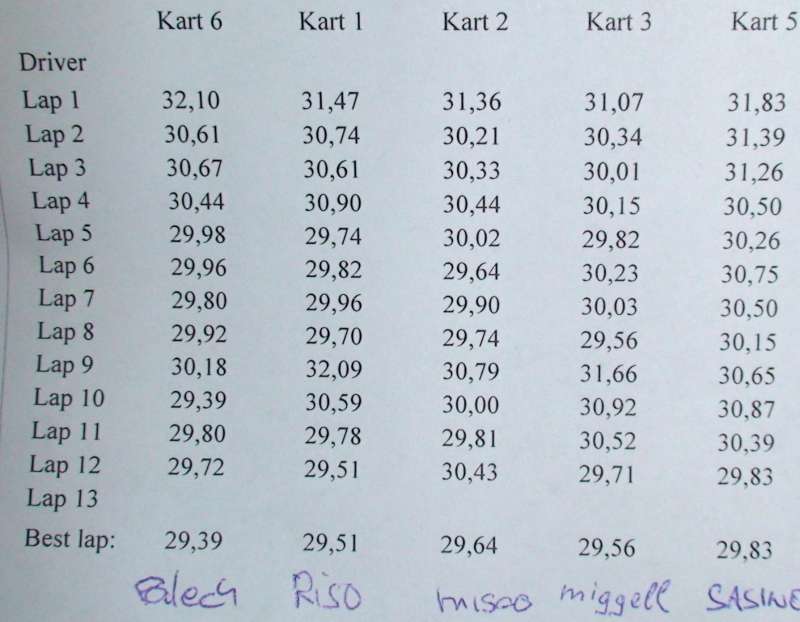 Kart 6 Kart 1 Kart 2 Kart 3 Kart 5
Driver
Lap 1 32,10 31,47 31,36 31,07 31,83
Lap 2 30,61 30,74 30,21 30,34 31,39
Lap 3 30,67 30,61 30,33 30,01 31,26
Lap 4 30,44 30,90 30,44 30,15 30,50
Lap 5 29,98 29,74 30,02 29,82 30,26
Lap 6 29,96 29,82 29,64 30,23 30,75
Lap 7 29,80 29,96 29,90 30,03 30,50
Lap 8 29,92 29,70 29,74 29,56 30,15
Lap 9 30,18 32,09 30,79 31,66 30,65
Lap 10 29,39 30,59 30,00 30,92 30,87
Lap 11 29,80 29,78 29,81 30,52 30,39
Lap 12 29,72 29,51 30,43 29,71 29,83
Lap 13
Best lap: 29,39 29,51 29,64 29,56 29,83
Riso misoo miggell SASINO